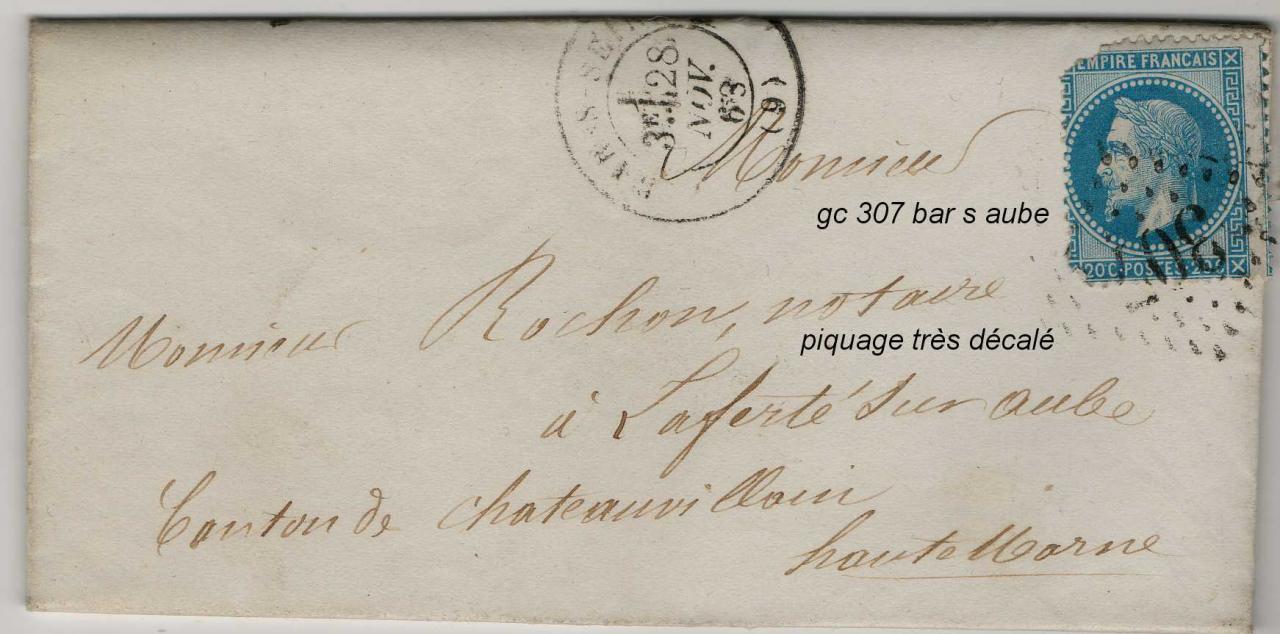 BAR-S-SEIN
(9)
3E
28
NOV.
68
EMPIRE FRANCAIS
20C·POSTES·20C
Monsieur
gc 307 bar s aube
Monsieur Rochon, notaire
piquage très décalé
à Laferté Sur aube
Canton de Chateauvillain
haute Marne